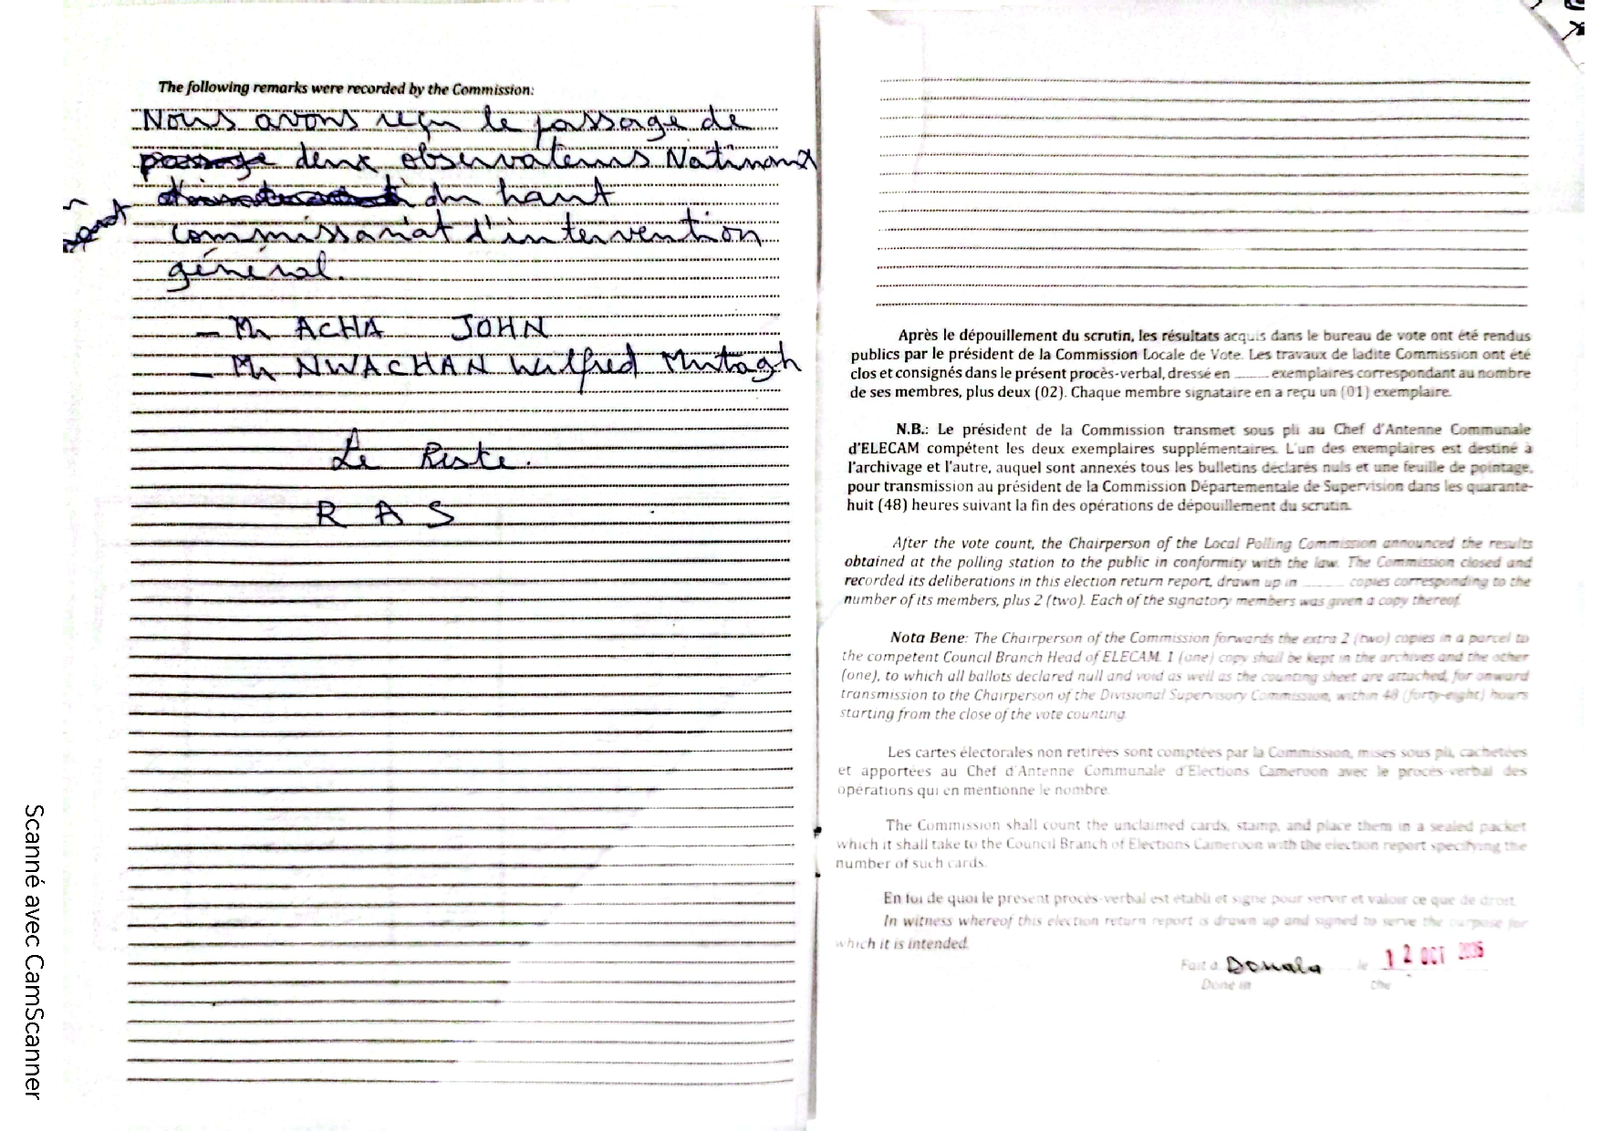 The following remarks were recorded by the Commission:
Nous avons reçu le passage de
passage deux observateurs Nationaux
du haut
commissariat d'intervention
général.
- Mr ACHA JOHN
- Mr NWACHAN Wilfred Mutagh
Le Reste.
R A S
Après le dépouillement du scrutin, les résultats acquis dans le bureau de vote ont été rendus
publics par le président de la Commission Locale de Vote. Les travaux de ladite Commission ont été
clos et consignés dans le présent procès-verbal, dressé en ........ exemplaires correspondant au nombre
de ses membres, plus deux (02). Chaque membre signataire en a reçu un (01) exemplaire.
N.B.: Le président de la Commission transmet sous pli au Chef d'Antenne Communale
d'ELECAM compétent les deux exemplaires supplémentaires. L'un des exemplaires est destiné à
l'archivage et l'autre, auquel sont annexés tous les bulletins déclarés nuls et une feuille de pointage,
pour transmission au président de la Commission Départementale de Supervision dans les quarante-
huit (48) heures suivant la fin des opérations de dépouillement du scrutin.
After the vote count, the Chairperson of the Local Polling Commission announced the results
obtained at the polling station to the public in conformity with the law. The Commission closed and
recorded its deliberations in this election return report, drawn up in ........ copies corresponding to the
number of its members, plus 2 (two). Each of the signatory members was given a copy thereof.
Nota Bene: The Chairperson of the Commission forwards the extra 2 (two) copies in a parcel to
the competent Council Branch Head of ELECAM. 1 (one) copy shall be kept in the archives and the other
(one), to which all ballots declared null and void as well as the counting sheet are attached, for onward
transmission to the Chairperson of the Divisional Supervisory Commission, within 48 (forty-eight) hours
starting from the close of the vote counting.
Les cartes électorales non retirées sont comptées par la Commission, mises sous pli, cachetées
et apportées au Chef d'Antenne Communale d'Elections Cameroon avec le procès-verbal des
opérations qui en mentionne le nombre.
The Commission shall count the unclaimed cards, stamp, and place them in a sealed packet
which it shall take to the Council Branch of Elections Cameroon with the election report specifying the
number of such cards.
En foi de quoi le présent procès-verbal est établi et signé pour servir et valoir ce que de droit.
In witness whereof this election return report is drawn up and signed to serve the purpose for
which it is intended.
Fait à Douala le 12 OCT 2025
Done in the
Scanné avec CamScanner